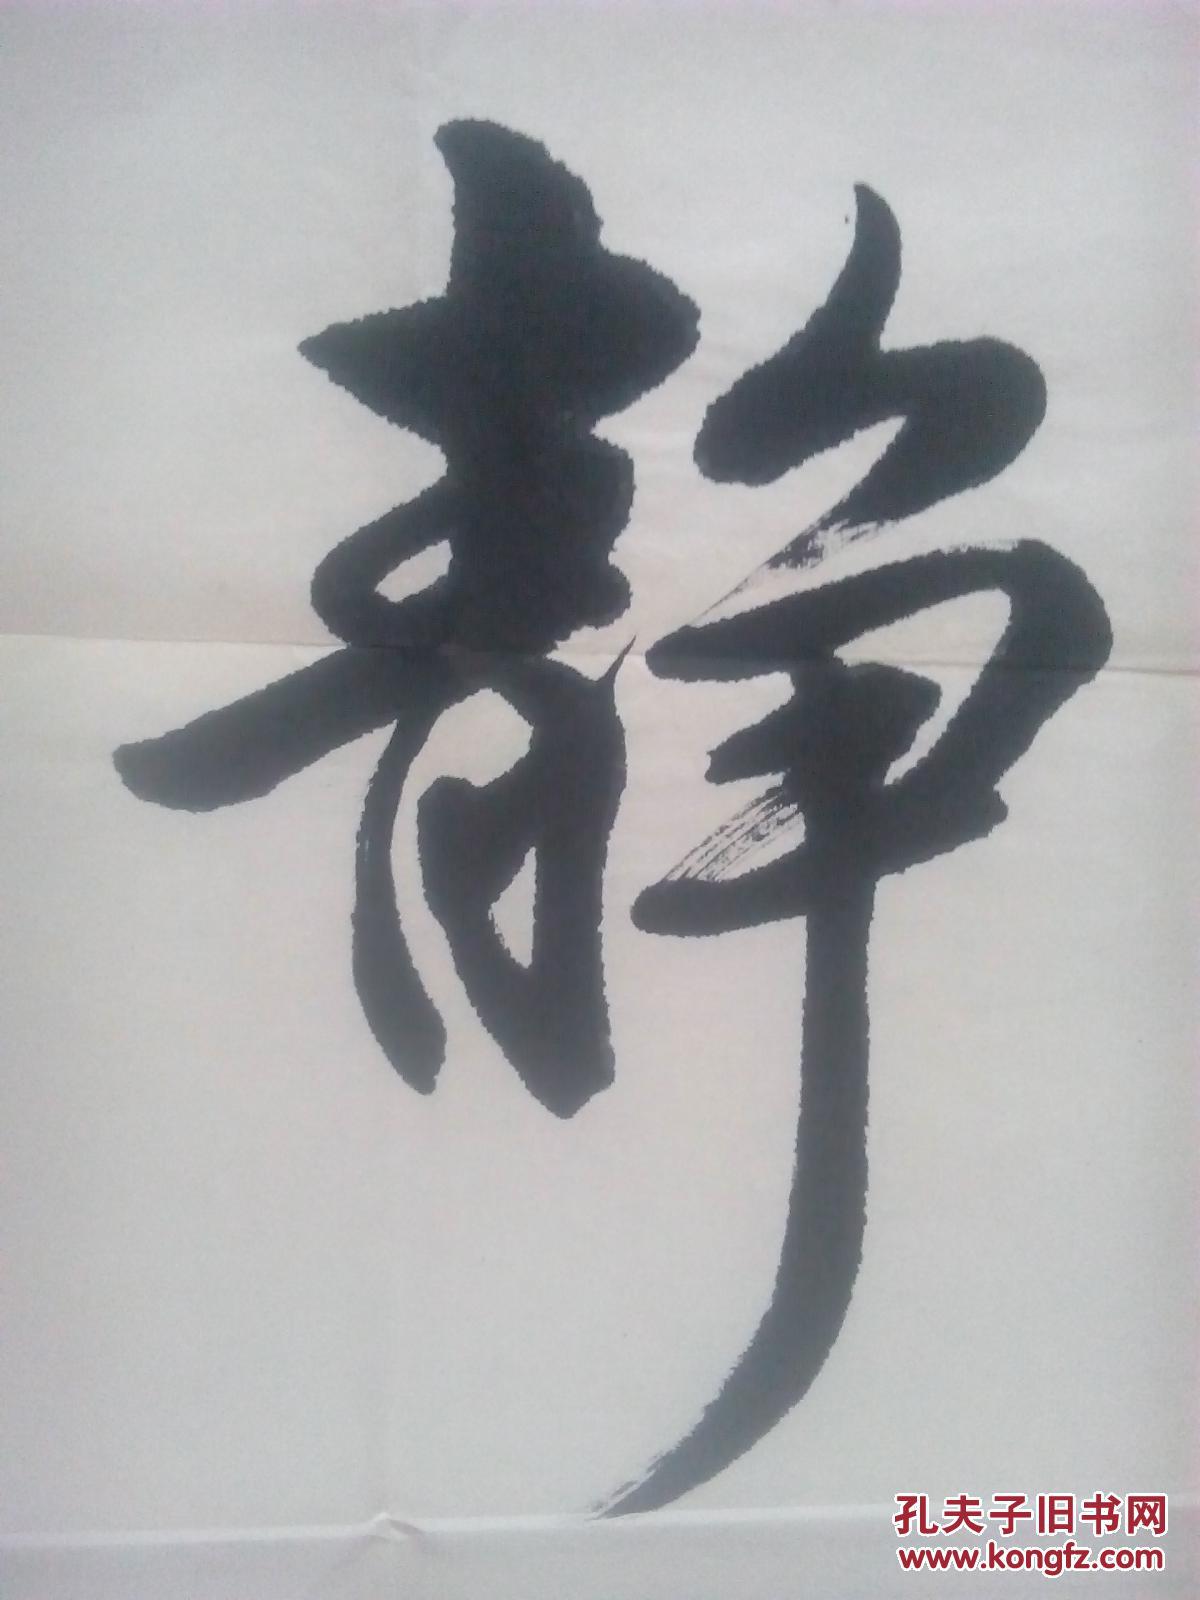 静
孔夫子旧书网
www.kongfz.com